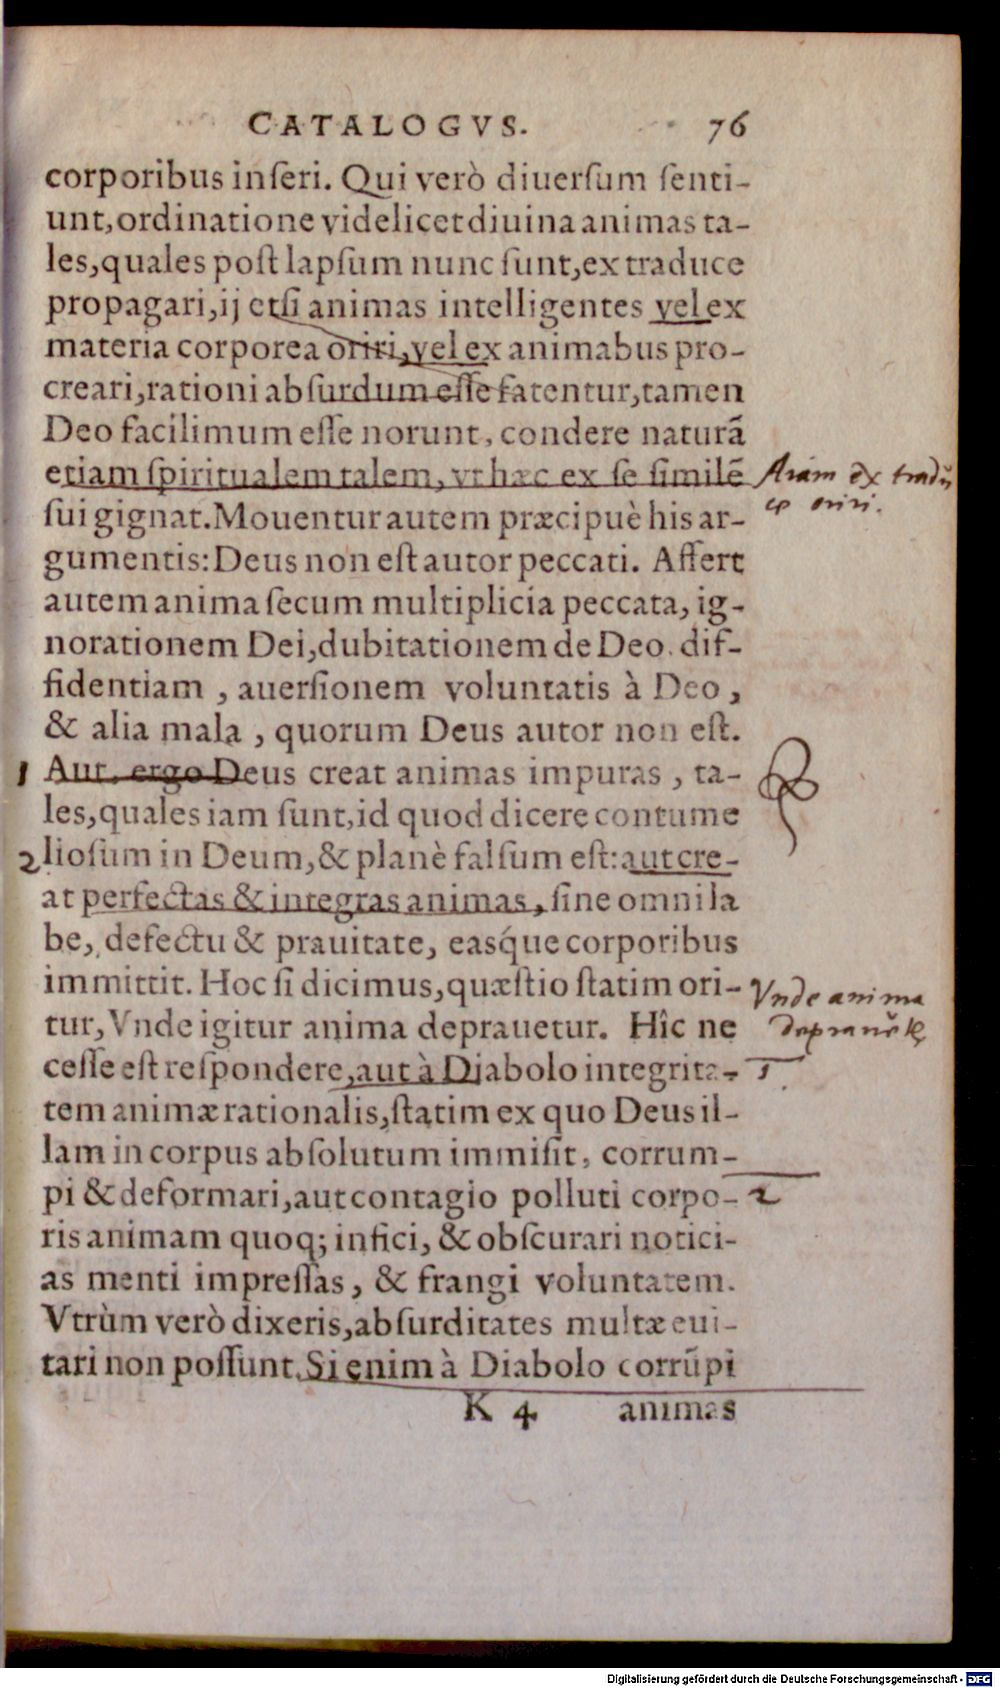 CATALOGVS. 76
corporibus inſeri. Qui verò diuerſum ſenti-
unt, ordinatione videlicet diuina animas ta-
les, quales poſt lapſum nunc ſunt, ex traduce
propagari, ij etſi animas intelligentes vel ex
materia corporea oriri, vel ex animabus pro-
creari, rationi abſurdum eſſe fatentur, tamen
Deo facilimum eſſe norunt, condere naturã
etiam ſpiritualem talem, vt hæc ex ſe ſimilẽ
Aiam ex tradu
ce oriri.
ſui gignat. Mouentur autem præcipuè his ar-
gumentis: Deus non eſt autor peccati. Affert
autem anima ſecum multiplicia peccata, ig-
norationem Dei, dubitationem de Deo. dif-
fidentiam, auerſionem voluntatis à Deo,
& alia mala, quorum Deus autor non eſt.
1 Aut, ergo Deus creat animas impuras, ta-
les, quales iam ſunt, id quod dicere contume
2 lioſum in Deum, & planè falſum eſt: aut cre-
at perfectas & integras animas, ſine omni la
be, defectu & prauitate, easq́ue corporibus
immittit. Hoc ſi dicimus, quæſtio ſtatim ori-
Vnde anima
tur, Vnde igitur anima deprauetur. Hîc ne
ceſſe eſt reſpondere, aut à Diabolo integrita- 1
tem animæ rationalis, ſtatim ex quo Deus il-
lam in corpus abſolutum immiſit, corrum-
pi & deformari, aut contagio polluti corpo- 2
ris animam quoq; infici, & obſcurari notici-
as menti impreſſas, & frangi voluntatem.
Vtrùm verò dixeris, abſurditates multæ eui-
tari non poſſunt. Si enim à Diabolo corrũpi
K 4 animas
Digitalisierung gefördert durch die Deutsche Forschungsgemeinschaft - DFG